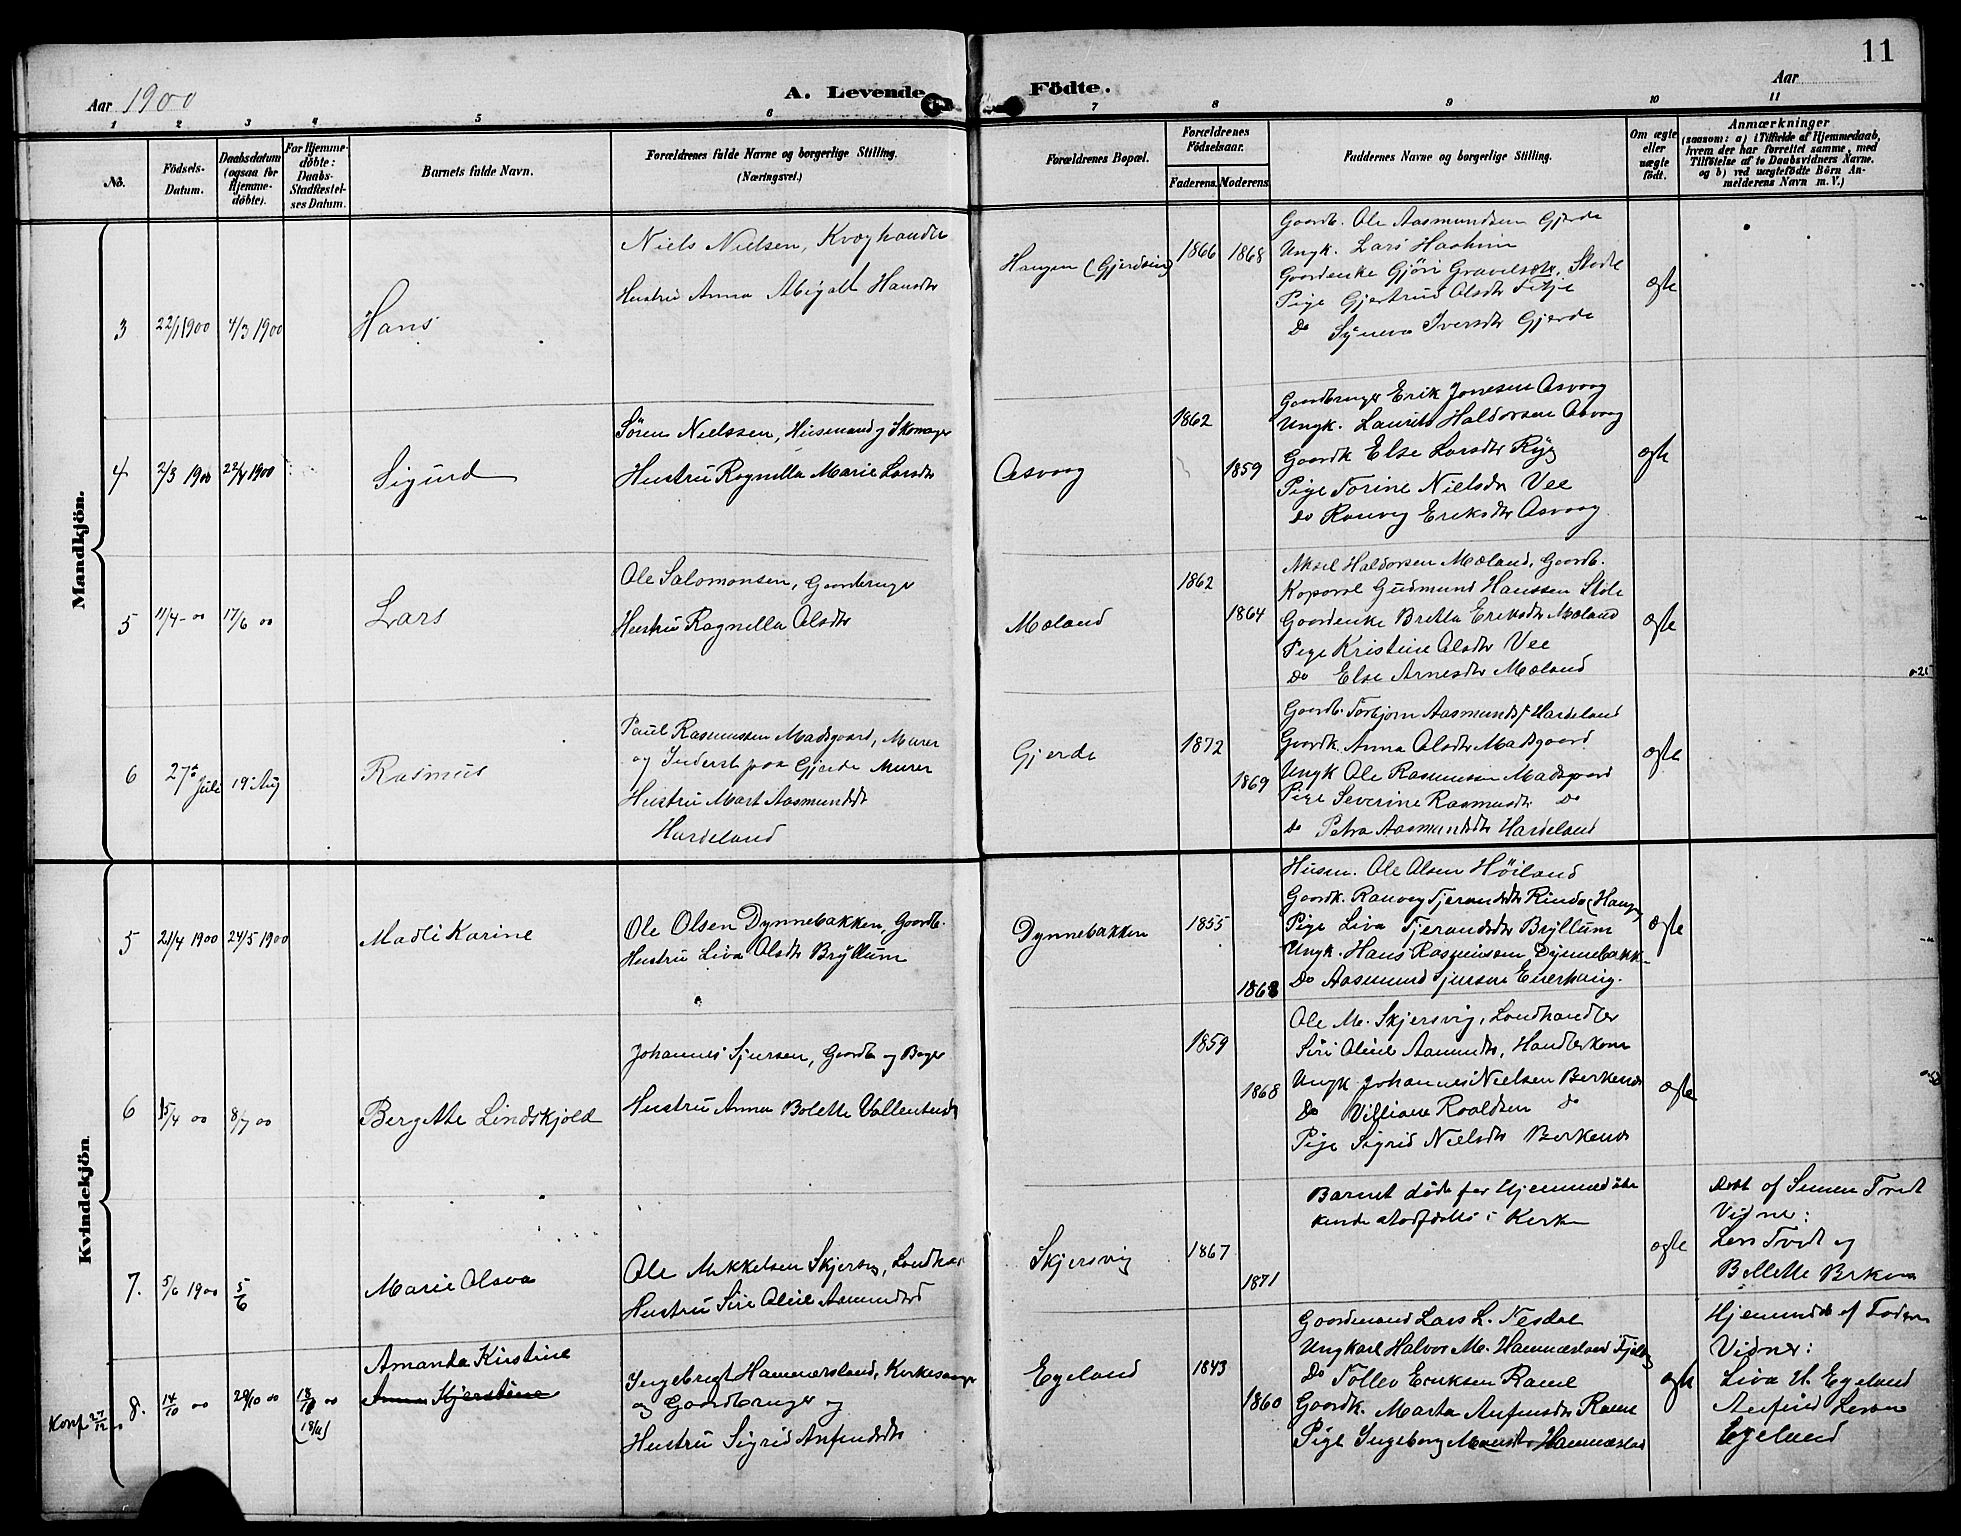 11
Aar 1900
A. Levende Födte.
Aar
1 2 3 4 5 6 7 8 9 10 11
No.
Födsels-Datum.
Daabsdatum (ogsaa for Hjemme-døbte).
For Hjemme-døbte: Daabs-Stadfæstel-ses Datum.
Barnets fulde Navn.
Forældrenes fulde Navne og borgerlige Stilling. (Næringsvei.)
Forældrenes Bopæl.
Forældrenes Födselsaar.
Faderens. Moderens.
Faddernes Navne og borgerlige Stilling.
Om ægte eller uægte født.
Anmærkninger
(saasom: a) i Tilfælde af Hjemmedaab,
hvem der har forrettet samme, med
Tilföielse af to Daabsvidners Navne.
og b) ved uægtefödte Börn An-
melderens Navn m. V.)
Mandkjön.
3 22/1 1900 4/3 1900
Hans
Niels Nielsen, Kvæghandler
Hustru Anna Abigalt Hansdtr
Haugen (Gjerdsing) 1866 1868
Gaardb. Ole Aasmundsen Gjerde
Ungk. Lars Haaheim
Gaardenke Gjøri Gravelsdtr. Stole
Pige Gjertrud Olsdtr Fitje
Do Syneva Iversdtr Gjerde
ægte
4 2/3 1900 22/4 1900
Sigurd
Sören Nielssen, Husmand og Skomager
Hustru Ragnilla Marie Larsdtr
Osvaag
1862
1859
Gaardbruger Erik Jonesen Osvaag
Ungk. Laurits Haldorsen Osvaag
Gaardk Else Larsdtr Ryg
Pige Torine Nielsdtr Vee
Do Ranveg Eriksdtr Osvaag
ægte
5 11/4 - 00 17/6 00
Lars
Ole Salomonsen, Gaardbruger
Hustru Ragnilla Olsdtr
Mæland
1862
1864
Aksel Haldorsen Mæland, Gaardb.
Koporal Gudmund Hanssen Stole
Gaardenke Britta Eriksdtr Mæland
Pige Kristine Olsdtr Vee
Do Else Arnesdtr Mæland
ægte
6 27de Juli 19 Aug
Rasmus
Paul Rasmussen Madsgaard, Murer
og Inderst paa Gjerde Murer
Hustru Mart Aasmundsdtr
Hardeland
Gjerde
1872
1869
Gaardb. Torbjørn Aasmunds. Hardeland
Gaardk. Anna Olsdtr Madsgaard
Ungk Ole Rasmussen Madsgaard
Pige Severine Rasmusdtr Do
Do Petra Aasmundsdtr Hardeland
ægte
Kvindekjön.
5 21/4 1900 24/5 1900
Madli Karine
Ole Olsen Dynnebakken, Gaardb.
Hustru Liva Olsdtr Bryllum
Dynnebakken
1855
1868
Husm. Ole Olsen Höiland
Gaardk. Ranveg Tjerandsdtr Rinde (Haugen)
Pige Liva Tjerandsdtr Bryllum
Ungk. Hans Rasmussen Dynnebakk-
Do Aasmund Sjursen Enerhaug.
ægte
6 15/4 00 8/7 00
Bergitte Lindskjold
Johannes Sjursen, Gaardb og Bager
Hustru Anna Bolette Vallentinsdtr
1859
1868
Ole M. Skjersvig, Landhandler
Siri Oline Aamundsdtr, Handlerkone
Ungk Johannes Nielsen Berkenes
Do Villiam Roaldsen do
Pige Sigrid Nielsdtr Berkenes
ægte
7. 5/6 1900 5/6
Marie Olava
Ole Mikkelsen Skjersvig, Landhan
Hustru Siri Oline Aamundsd
Skjersvig
1867
1871
Barnet døde før Hjemmedåben
kunde stadfæstes i Kirken
ægte
Døbt af Simon Tvedt
Vidner:
Lars Tvedt og
Billette Birkenes
8. 14/10 00 28/10 00 18/11 00
(18/11)
Konf 27/12
Amanda Kirstine
Anna Kjerstine
Ingebregt Hammersland, Kirkesanger
og Gaardbruger og
Hustru Sigrid Anfinsdtr
Egeland
1843
1860
Gaardmand Lars L. Nesdal
Ungkarl Halvor M. Hammersland Fjelby
Do Tollev Eriksen Rame
Gaardk. Marta Anfinsdtr Rame
Pige Ingeborg Monsdtr Hammersland
ægte
Hjemmedøbt af Faderen
Vidner:
Liva H. Egeland
Anfind Larsen
Egeland